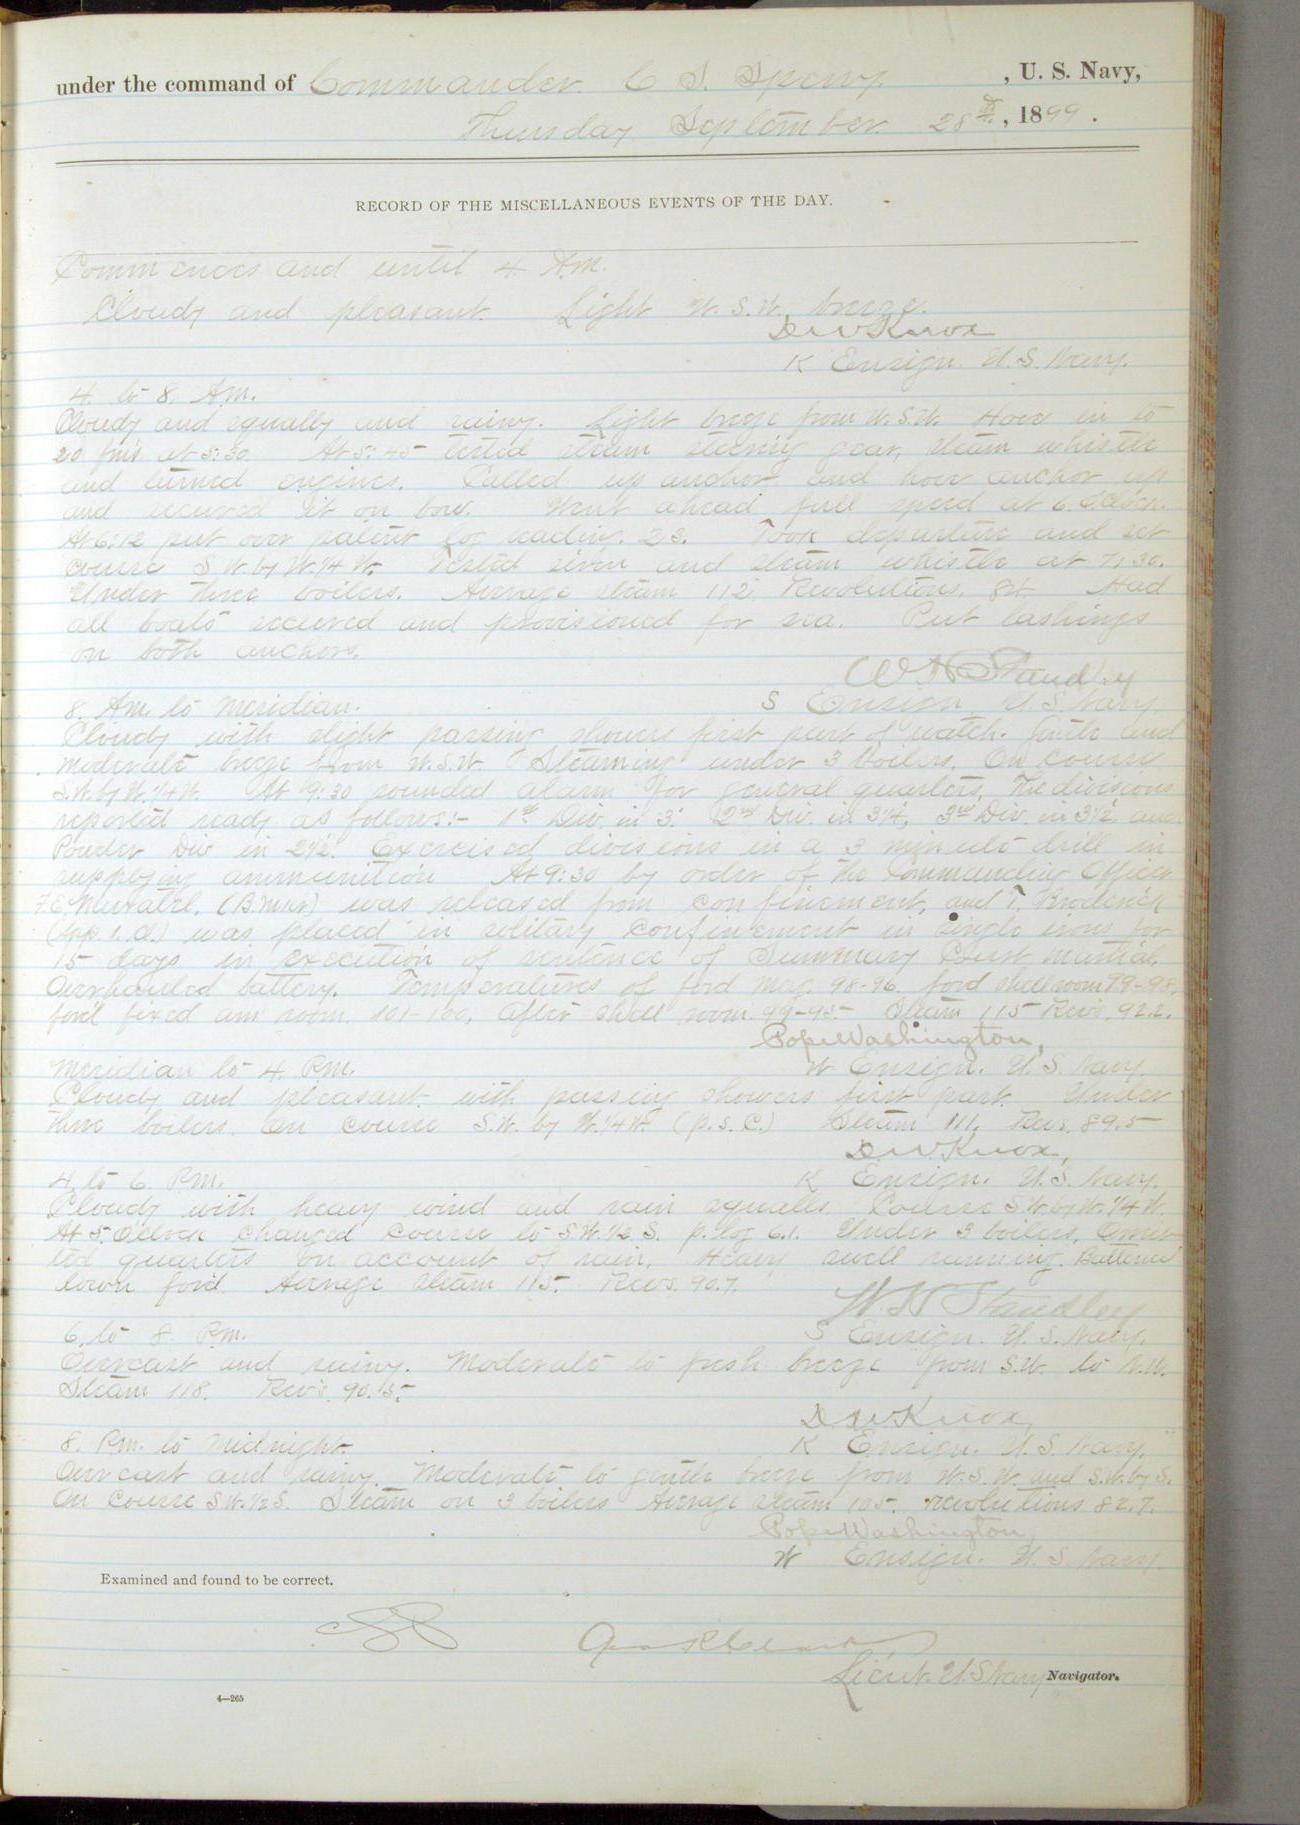 under the command of Commander C. S. Sperry, U. S. Navy,
Thursday September 28th, 1899.
RECORD OF THE MISCELLANEOUS EVENTS OF THE DAY.
Commences and until 4 A.M.
Cloudy and pleasant. Light W.S.W. breeze.
D W Knox
K Ensign. U.S. Navy.
4 to 8 A.M.
Cloudy and squally and rainy. Light breeze from W.S.W. Hove in to
20 fms at 5:30. At 5:45 tested steam steering gear, steam whistle
and turned engines. Called up anchor and hove anchor up
and secured it on bow. Went ahead full speed at 6.
At 6:12 put over patent log reading 23. Took departure and set
course S.W. by W. 1/4 W. Tested siren and steam whistle at 7:30.
Under three boilers. Average steam 112. Revolutions. 84. Had
all boats secured and provisioned for sea. Put lashings
on both anchors.
W H Standley
8. A.M. to Meridian.
S Ensign. U.S. Navy
Cloudy with slight passing showers first part of watch. Gentle and
moderate breeze from W.S.W. Steaming under 3 boilers. On course
S.W. by W. 1/4 W. At 9:30 sounded alarm for general quarters. The divisions
reported ready as follows:- 1st Div. in 3. 2nd Div. in 3 1/4, 3rd Div. in 3 1/2 and
Powder Div in 2 1/2. Exercised divisions in a 3 minute drill in
supplying ammunition. At 9:30 by order of the Commanding Officer
was released from confinement, and T. Broderick
was placed in solitary confinement in single irons for
15 days in execution of sentence of Summary Court Martial.
Overhauled battery. Temperatures of ford mag. 98-96. ford shell room 99-98,
ford fixed am room. 101-100, After shell room. 99-95. Steam 115 Revs. 92.2.
Pope Washington,
Meridian to 4 P.M.
W Ensign. U.S. Navy
Cloudy and pleasant with passing showers first part. Under
three boilers. On course S.W. by W. 1/4 W. (p.s.c.) Steam 111. Revs. 89.5
D W Knox,
4 to 6 P.M.
K Ensign. U.S. Navy.
Cloudy with heavy wind and rain squalls. Course S.W. by W. 1/4 W.
At 5 O'clock changed course to S.W. 1/2 S. p. log 61. Under 3 boilers. Omit
ted quarters on account of rain. Heavy swell running. Battened
down ford. Average steam 115. Revs. 90.7.
W H Standley
6 to 8 P.M.
S Ensign. U.S. Navy.
Overcast and rainy. Moderate to fresh breeze from S.W. to W.
Steam 118. Revs. 90.5.
D W Knox,
8. P.M. to Midnight.
K Ensign. U.S. Navy.
Overcast and rainy. Moderate to gentle breeze from W.S.W. and S.W. by S.
On course S.W. 1/2 S. Steam on 3 boilers Average steam 105. revolutions 82.7.
Pope Washington,
W Ensign. U.S. Navy
Examined and found to be correct.
Lieut. U.S. Navy Navigator.
4—265